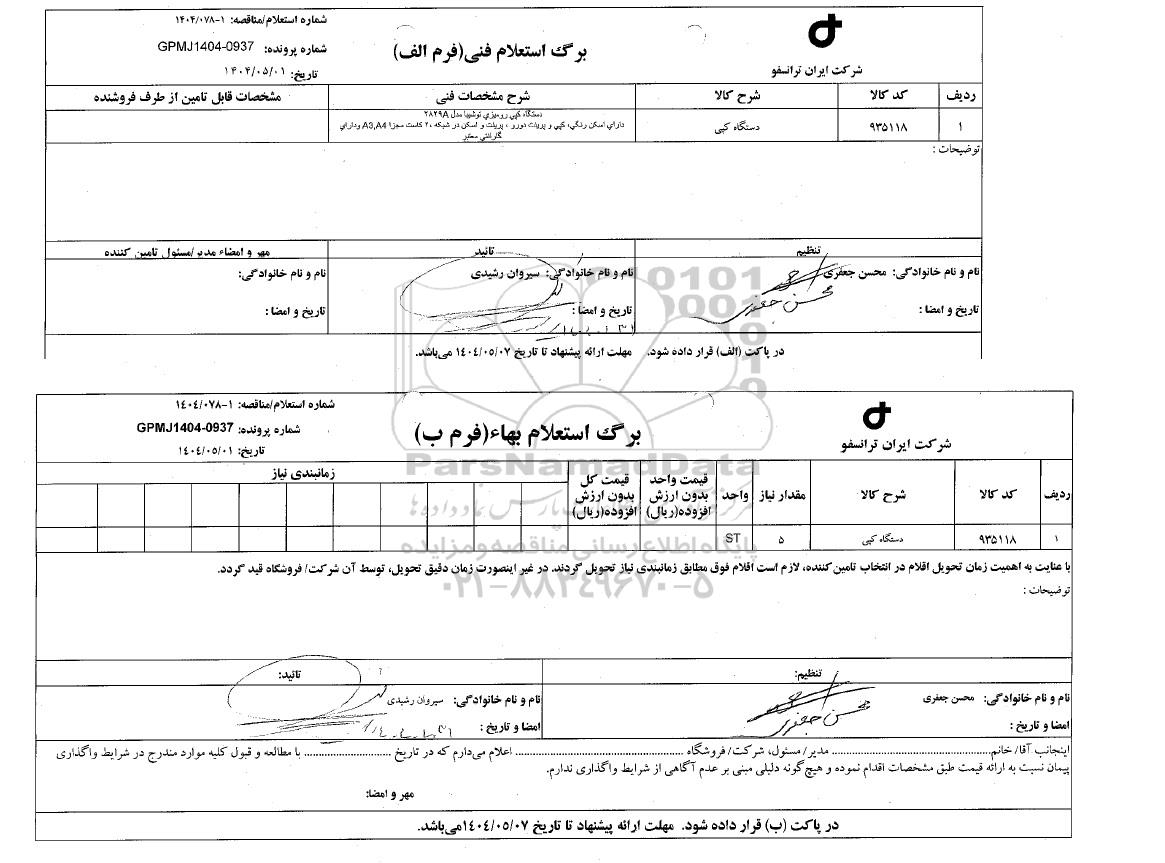 شماره استعلام/مناقصه: ۱-۱۴۰۴/۰۷۸
برگ استعلام فنی(فرم الف)
شماره پرونده: GPMJ1404-0937
تاریخ: ۱۴۰۴/۰۵/۰۱
شرکت ایران ترانسفو
ردیف کد کالا شرح کالا شرح مشخصات فنی مشخصات قابل تامین از طرف فروشنده
دستگاه کپي روميزي توشيبا مدل ۲۸۲۹A
۱ ۹۳۵۱۱۸ دستگاه کپی داراي اسکن رنگي، کپي و پرينت دورو ، پرينت و اسکن در شبکه ،۲ کاست مجزا A3,A4 وداراي
گارانتي معتبر
توضیحات :
تنظیم تائید مهر و امضاء مدیر/مسئول تامین کننده
نام و نام خانوادگی: محسن جعفری نام و نام خانوادگی: سیروان رشیدی نام و نام خانوادگی:
تاریخ و امضا : محسن جعفری تاریخ و امضا : تاریخ و امضا :
در پاکت (الف) قرار داده شود. مهلت ارائه پیشنهاد تا تاریخ ۱۴۰۴/۰۵/۰۷ می‌باشد.
شماره استعلام/مناقصه: ۱-۱۴۰۴/۰۷۸
برگ استعلام بهاء(فرم ب)
شماره پرونده: GPMJ1404-0937
شرکت ایران ترانسفو
تاریخ: ۱۴۰۴/۰۵/۰۱
ParsNamadData
ردیف کد کالا شرح کالا مقدار نیاز واحد قیمت واحد بدون ارزش افزوده(ریال) قیمت کل بدون ارزش افزوده(ریال) زمانبندی نیاز
۱ ۹۳۵۱۱۸ دستگاه کپی ۵ ST
پایگاه اطلاع رسانی مناقصه و مزایده
با عنایت به اهمیت زمان تحویل اقلام در انتخاب تامین‌کننده، لازم است اقلام فوق مطابق زمانبندی نیاز تحویل گردند. در غیر اینصورت زمان دقیق تحویل، توسط آن شرکت/ فروشگاه قید گردد.
۰۲۱-۸۸۳۴۹۶۷۰-۵
توضیحات :
تنظیم: تائید:
نام و نام خانوادگی: محسن جعفری نام و نام خانوادگی: سیروان رشیدی
امضا و تاریخ : محسن جعفری امضا و تاریخ :
اینجانب آقا/ خانم........................ مدیر/ مسئول، شرکت/ فروشگاه ........................ اعلام می‌دارم که در تاریخ ........................ با مطالعه و قبول کلیه موارد مندرج در شرایط واگذاری
پیمان نسبت به ارائه قیمت طبق مشخصات اقدام نموده و هیچ‌گونه دلیلی مبنی بر عدم آگاهی از شرایط واگذاری ندارم.
مهر و امضا:
در پاکت (ب) قرار داده شود. مهلت ارائه پیشنهاد تا تاریخ ۱۴۰۴/۰۵/۰۷می‌باشد.